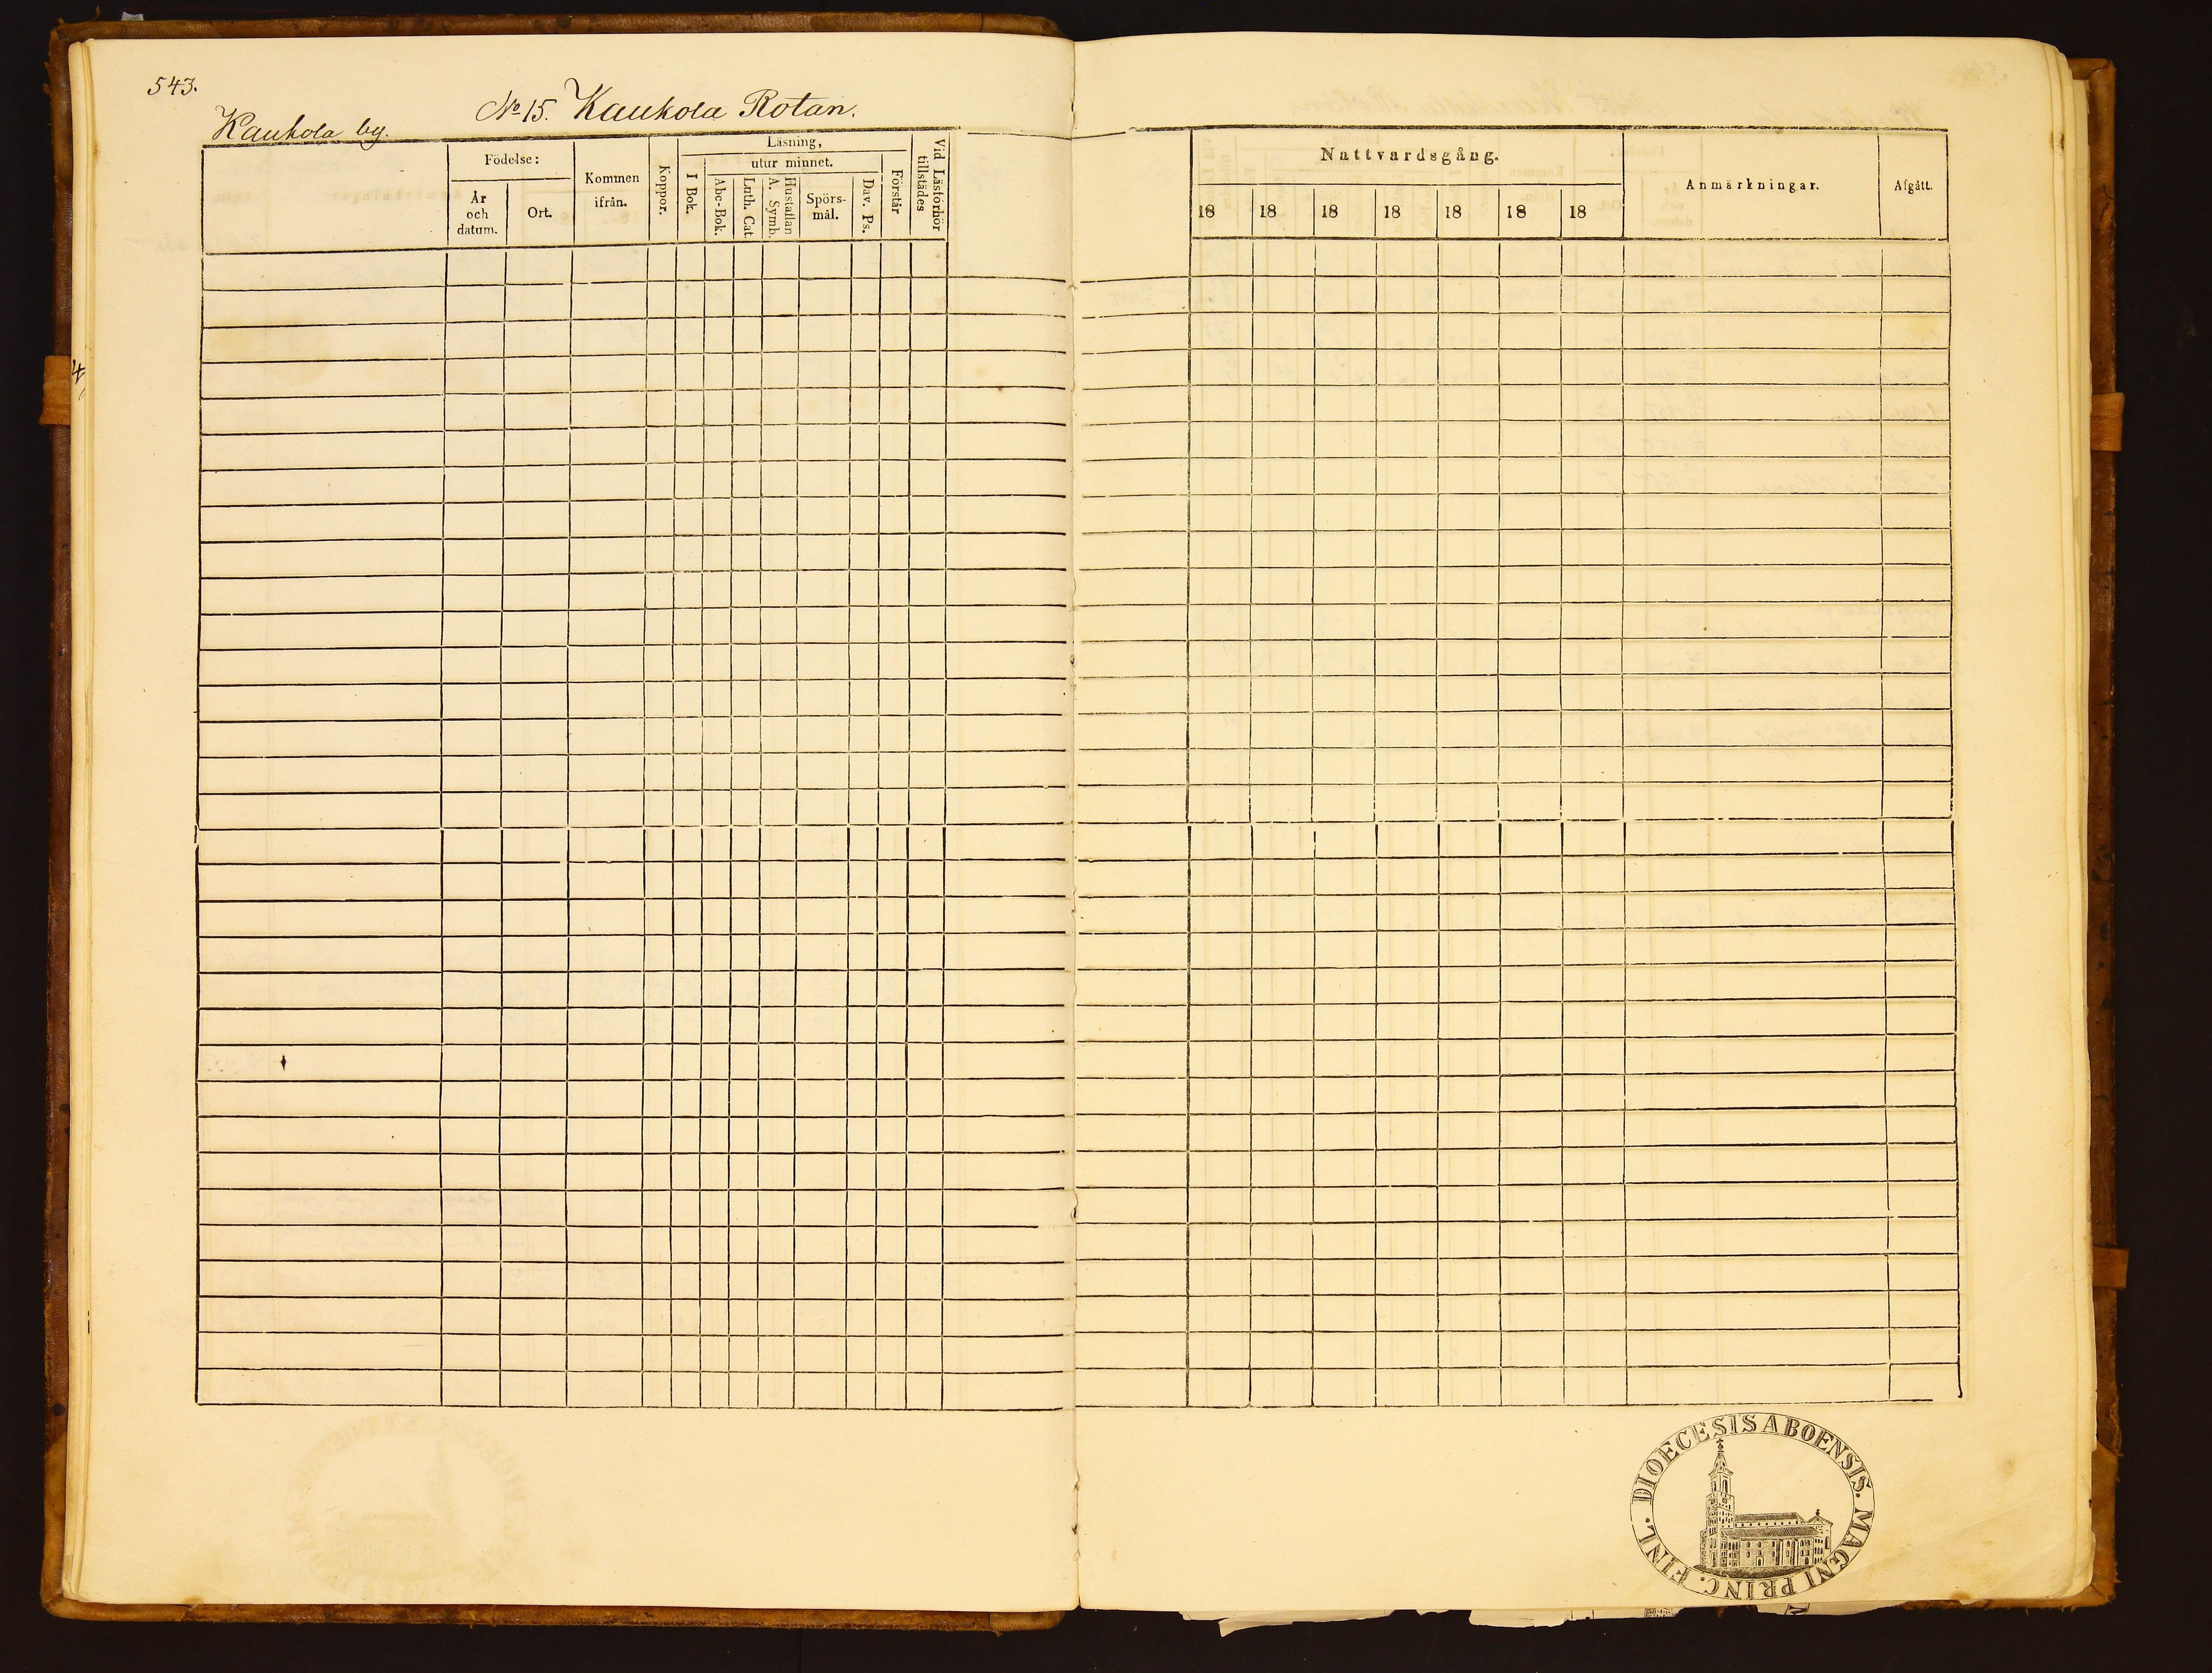 543.
No 15. Kaukola Rotan.
Kaukola by.
Födelse:
År och datum.
Ort.
Kommen ifrån.
Koppor.
Läsning,
utur minnet.
I Bok.
Abc-Bok.
Luth. Cat.
Hustaflan A. Symb.
Spörs-mål.
Dav. Ps.
Förstår
Vid Läsförhör tillstädes
Nattvardsgång.
18 18 18 18 18 18 18
Anmärkningar.
Afgått.
DIOECESIS ABOENSIS. MAGNI PRINC. FINL.
4